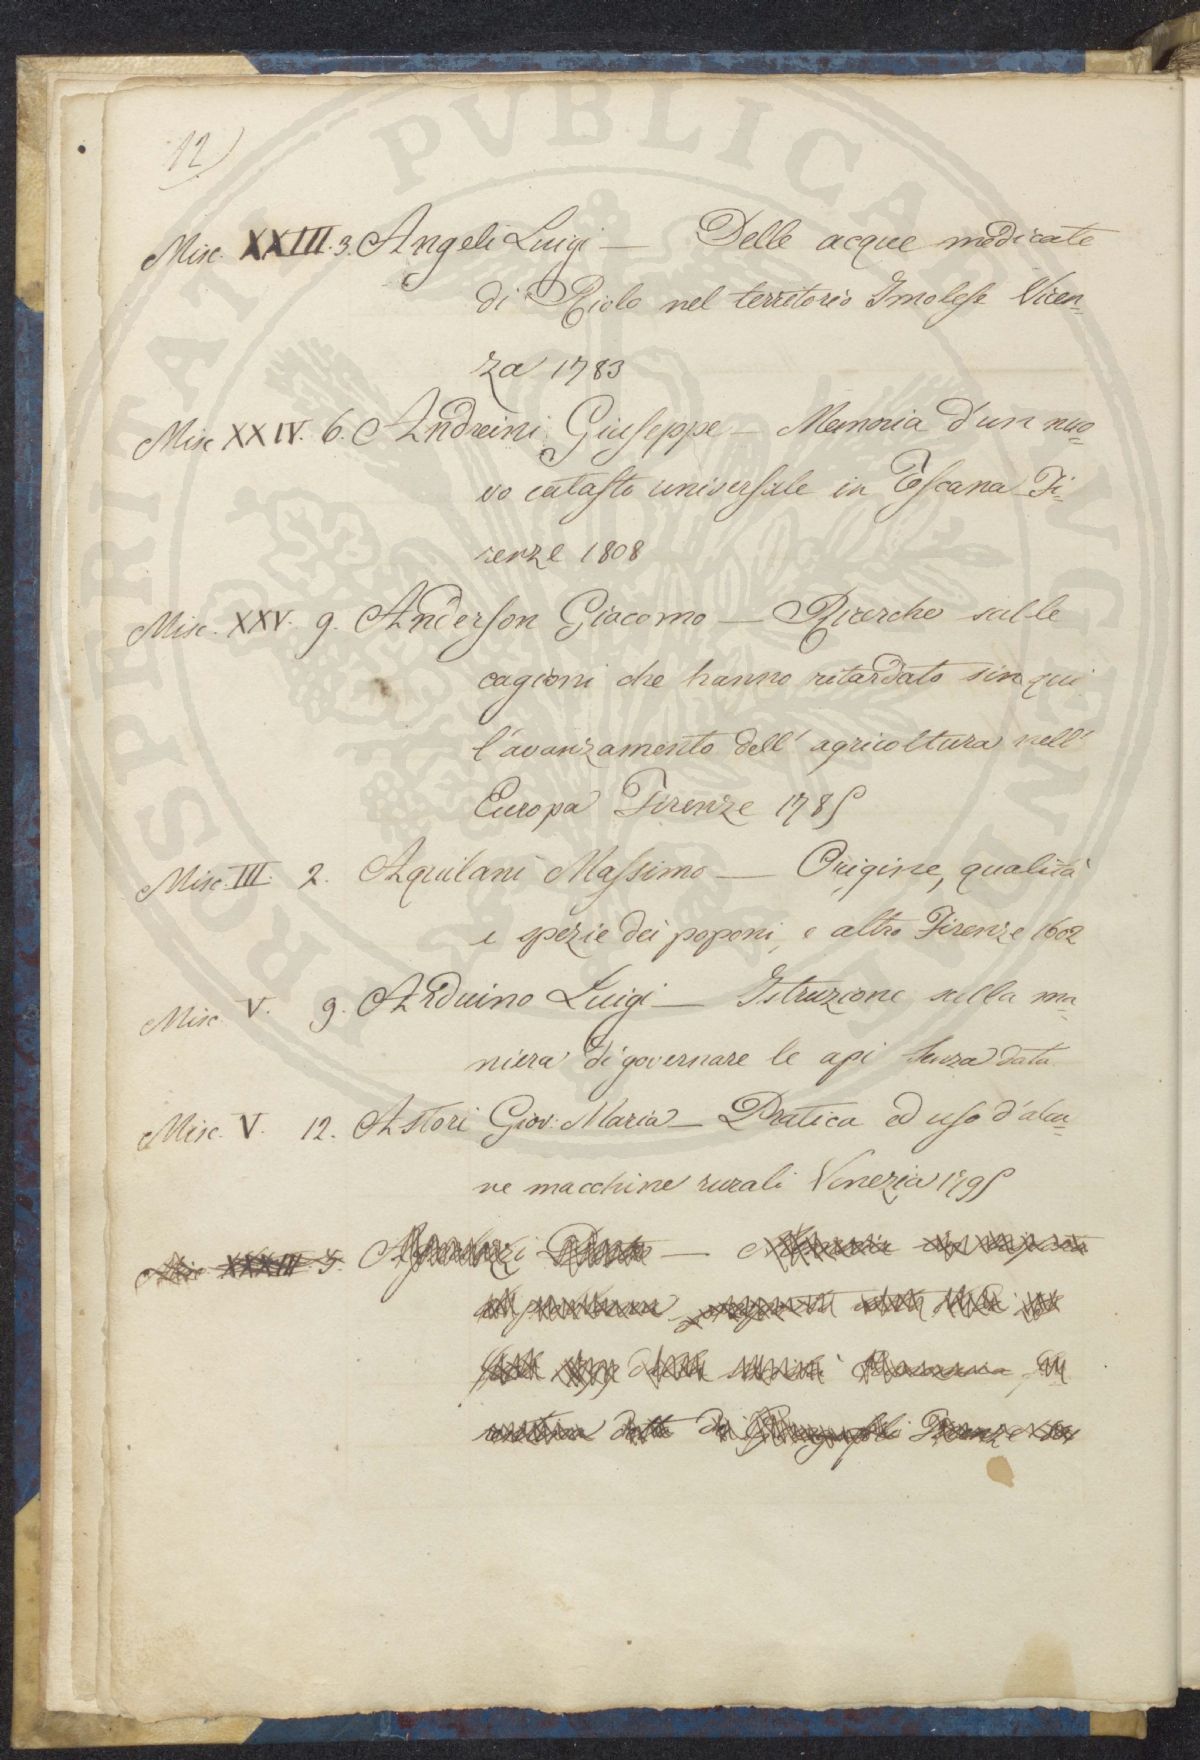 12)
Misc. XXIII. 3. Angeli Luigi — Delle acque medicate
di Riolo nel territorio Imolese Vicen=
za 1783
Misc XXIV. 6. Andreini Giuseppe — Memoria d'un nuo=
vo catasto universale in Toscana Fi=
renze 1808
Misc. XXV. 9. Anderson Giacomo — Ricerche sulle
cagioni che hanno ritardato sin qui
l'avanzamento dell' agricoltura nell'
Europa Firenze 1785
Misc. III. 2. Aquilani Massimo — Origine, qualità
e spezie dei poponi, e altro Firenze 1602
Misc. V. 9. Arduino Luigi — Istruzione sulla ma=
niera di governare le api senza data
Misc. V. 12. Astori Giov: Maria — Pratica ed uso d'alcu=
ne macchine rurali Venezia 1795
Misc XXXIII. 5.
Firenze
PROSPERITATI PVBLICAE AVGENDAE